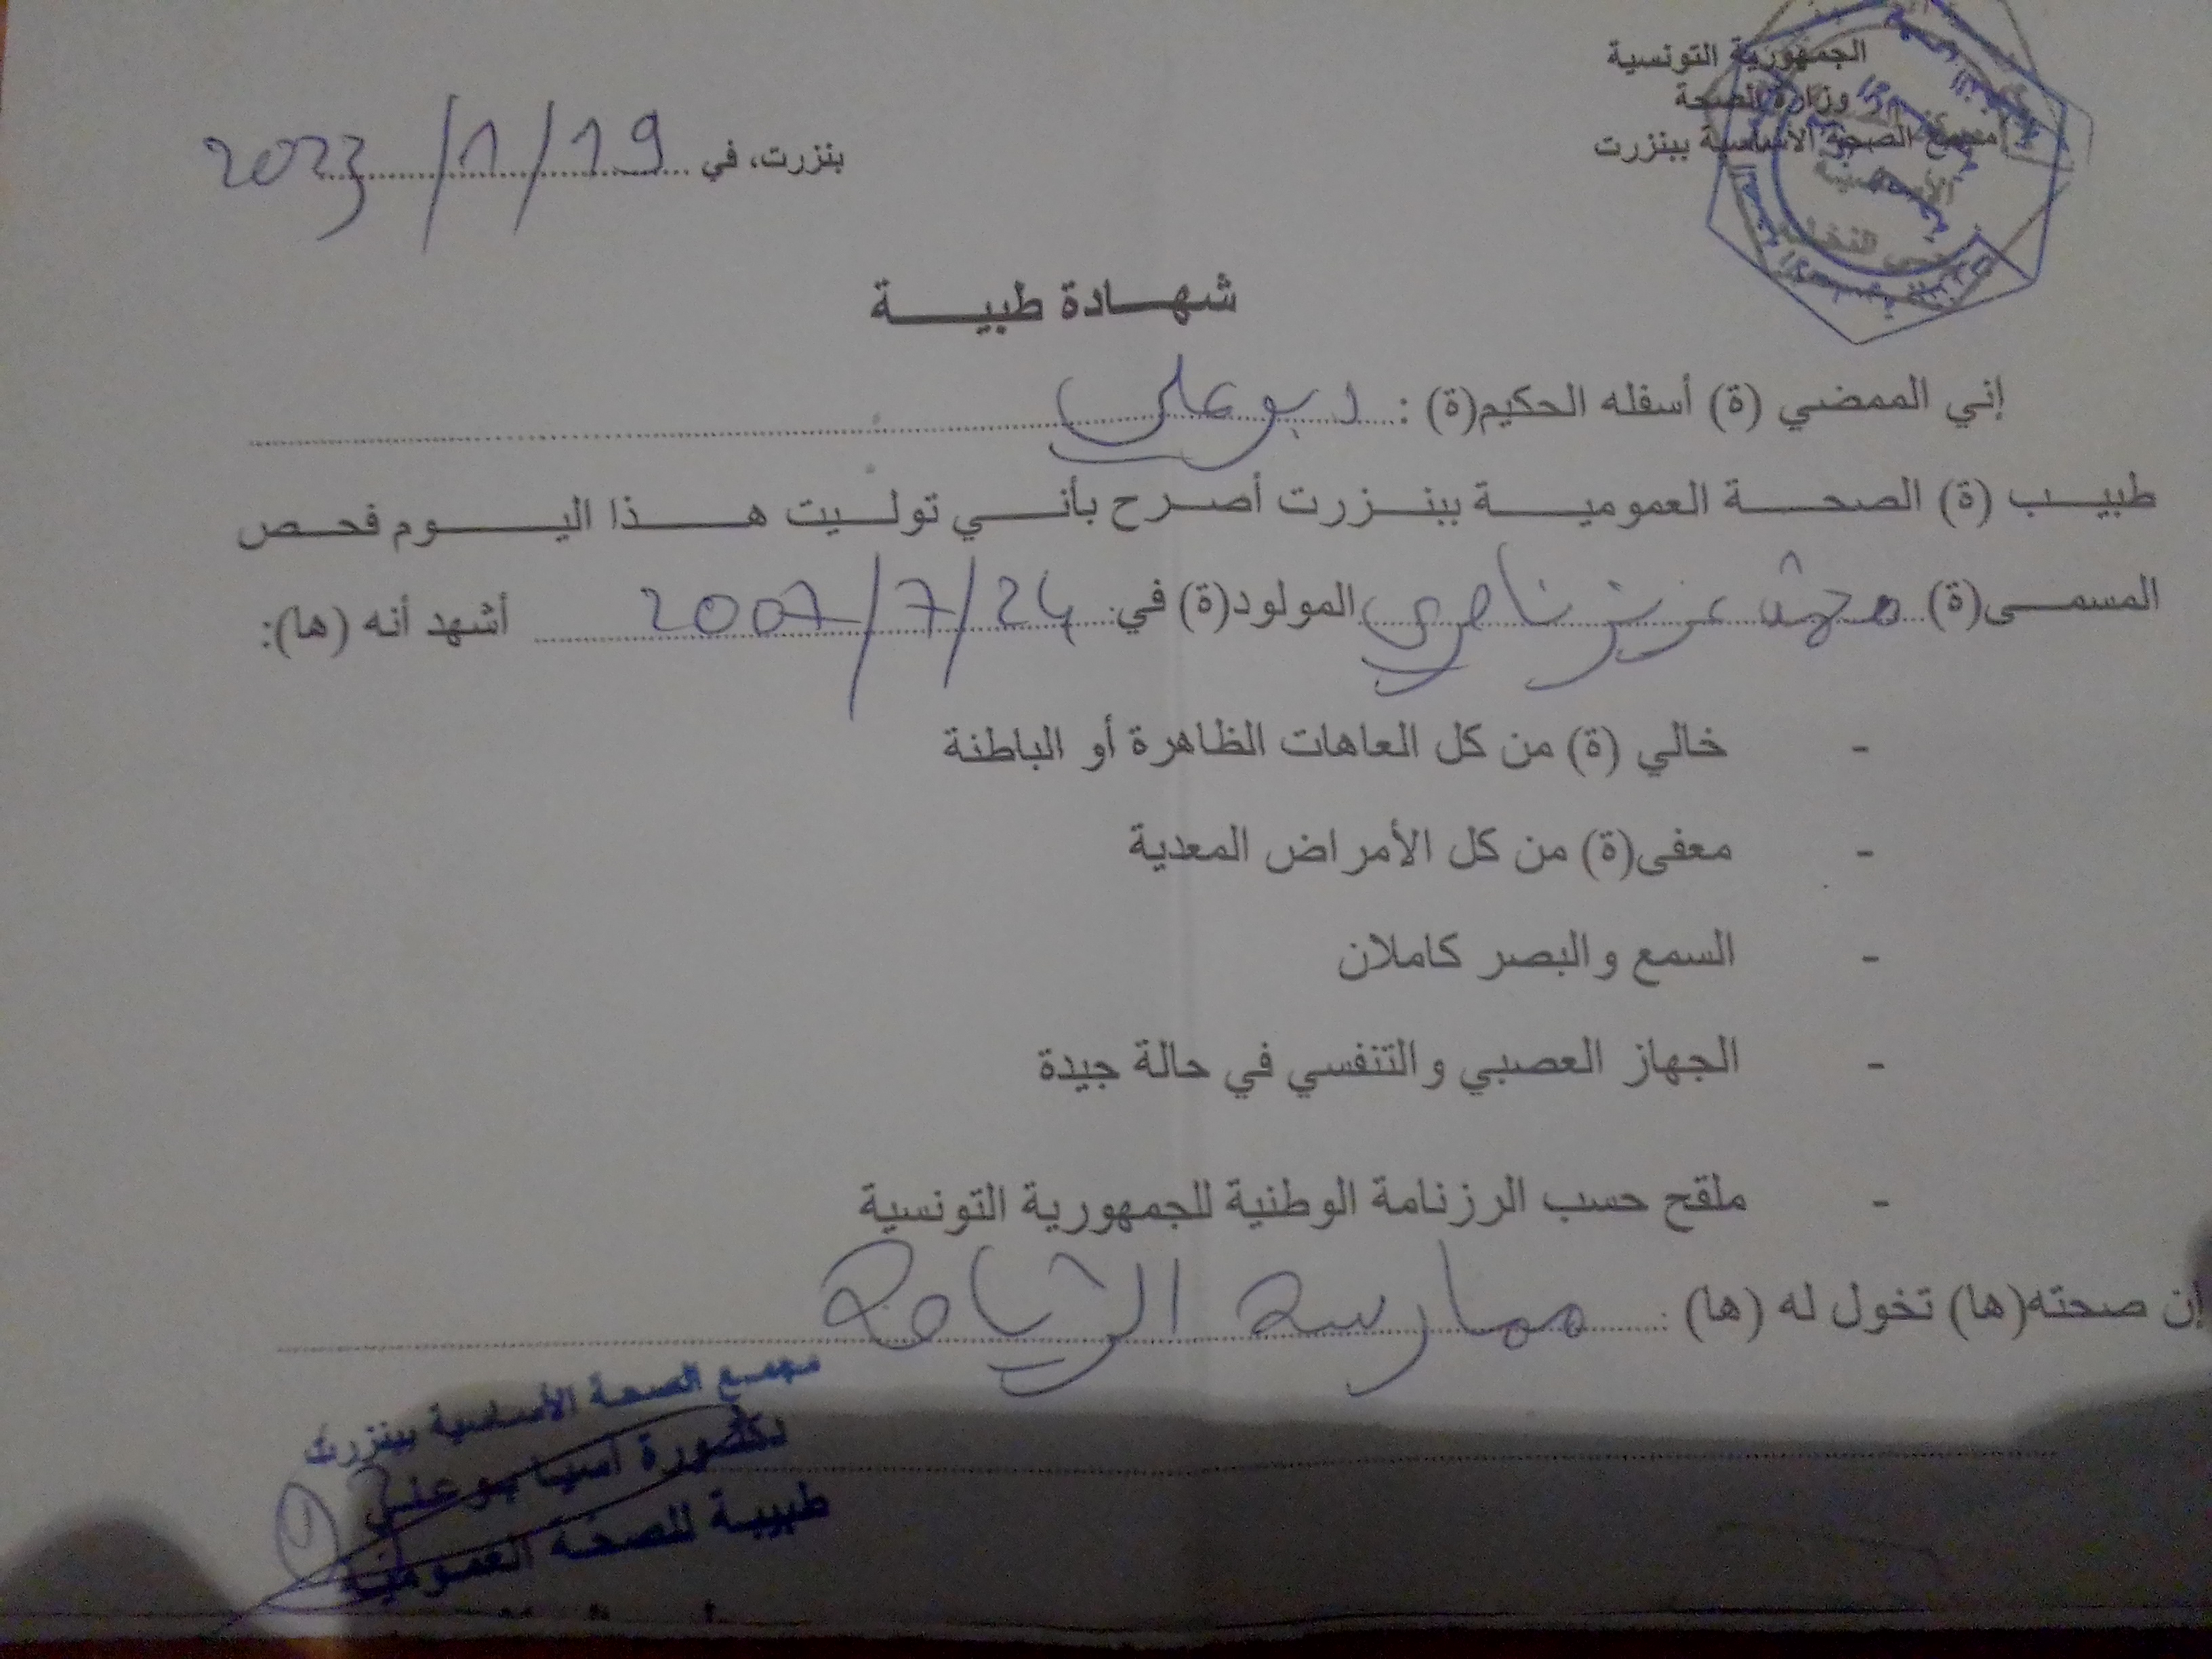 الجمهورية التونسية
وزارة الصحة
مجمع الصحة الأساسية ببنزرت
بنزرت، في 2023/1/19
شهـــادة طبيـــــة
إني الممضي (ة) أسفله الحكيم(ة) : د بوعلي
طبيـب (ة) الصحــــة العموميـــــة ببنـــزرت أصـرح بأنـــي تولـــيت هـــــذا اليـــــوم فحـــص
المسمـــى(ة) محمد عزيز ناصري المولود(ة) في 2007/7/24 أشهد أنه (ها):
- خالي (ة) من كل العاهات الظاهرة أو الباطنة
- معفى(ة) من كل الأمراض المعدية
- السمع والبصر كاملان
- الجهاز العصبي والتنفسي في حالة جيدة
- ملقح حسب الرزنامة الوطنية للجمهورية التونسية
إن صحته(ها) تخول له (ها) : ممارسة الرياضة
مجمع الصحة الأساسية ببنزرت
دكتورة آسيا بوعلي
طبيبة للصحة العمومية